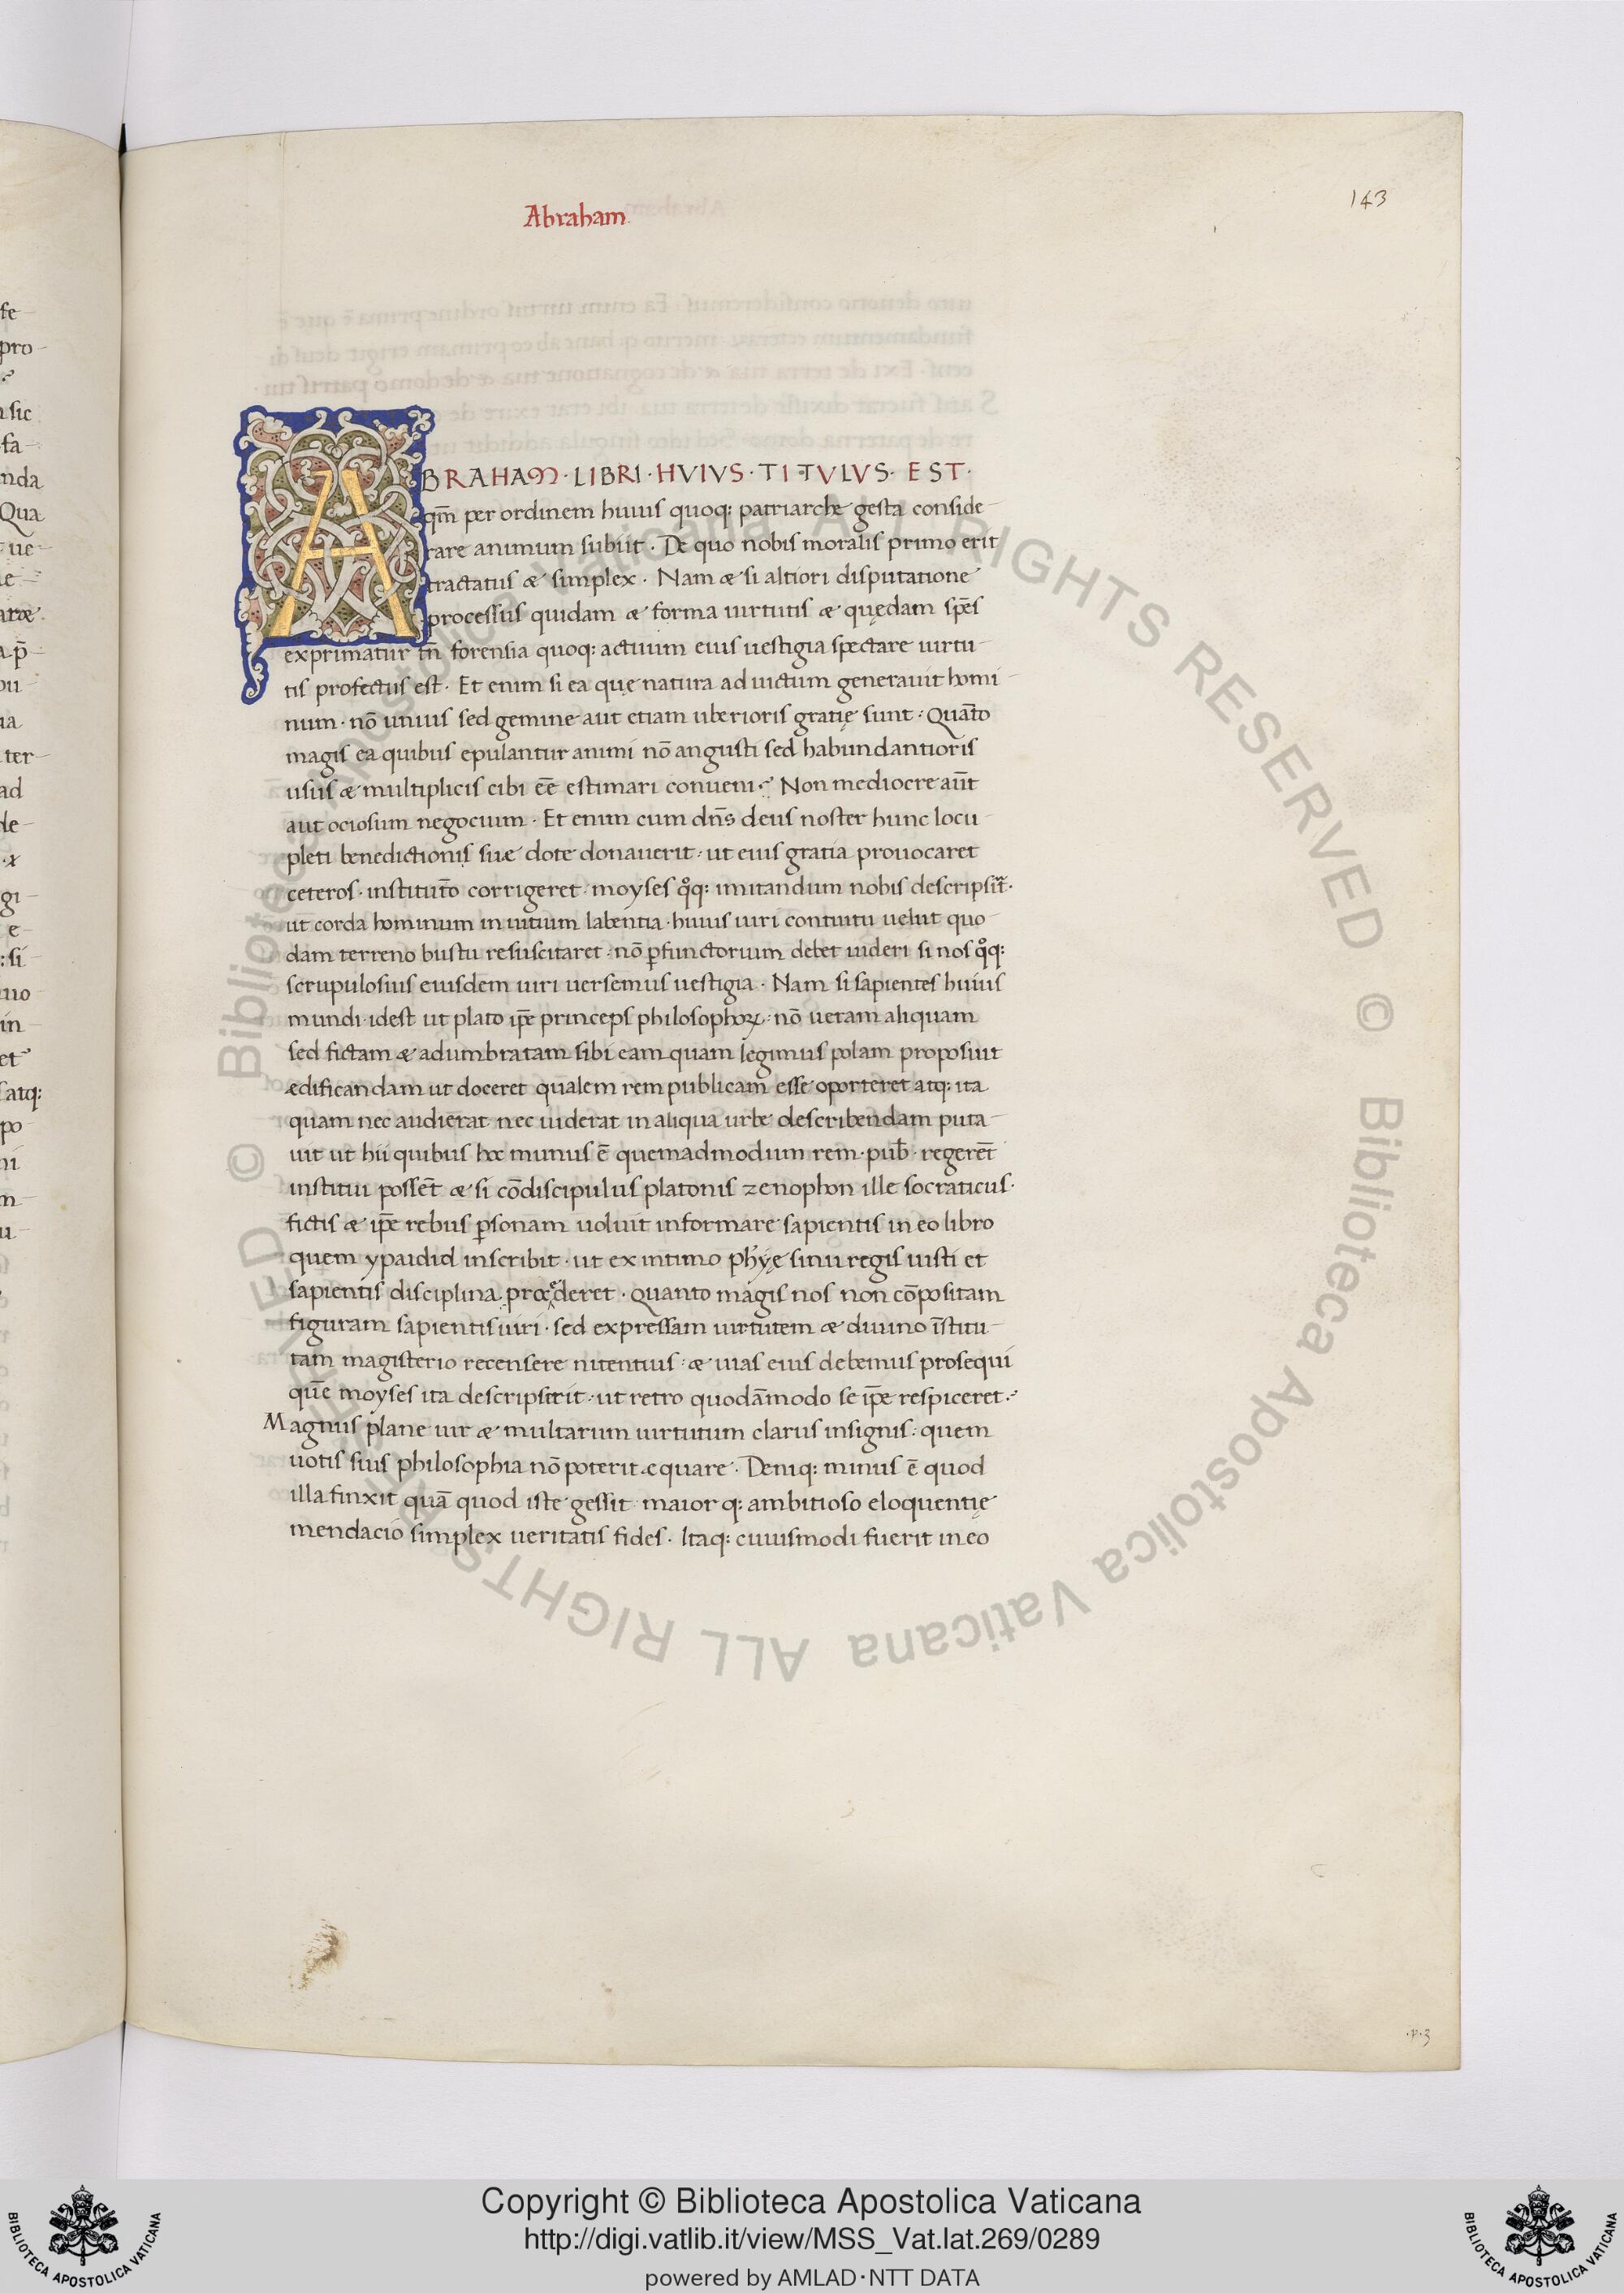 Abraham
143
ABRAHAM · LIBRI · HVIVS · TITVLVS · EST ·
qm̄ per ordinem huius quoq: patriarche gesta conside-
rare animum subiit · De quo nobis moralis primo erit
tractatus æ simplex · Nam æ si altiori disputatione
processus quidam æ forma uirtutis æ quędam sp̄es
exprimatur tn̄ forensia quoq: actuum eius uestigia spectare uirtu-
tis profectus est · Et enim si ea quę natura ad uictum generauit homi-
num · nō unius sed gemine aut etiam uberioris gratię sunt : Quāto
magis ea quibus epulantur animi nō angusti sed habundantioris
usus æ multiplicis cibi ēē estimari conueni · Non mediocre aūt
aut ociosum negocium · Et enim cum dn̄s deus noster hunc locu-
pleti benedictionis suæ dote donauerit · ut eius gratia prouocaret
ceteros · institut̄o corrigeret · moyses qͦq: imitandum nobis descripsit ·
ut corda hominum in uitium labentia · huius uiri contuitu uelut quo-
dam terreno bustu resuscitaret · nō p̱functorium debet uideri si nos qͦq:
scrupulosius eiusdem uiri uersemus uestigia · Nam si sapientes huius
mundi · idest ut plato ip̄e princeps philosophoꝝ · nō ueram aliquam
sed fictam æ adumbratam sibi eam quam legimus polam proposuit
ædificandam ut doceret qualem rem publicam esse oporteret atq: ita
quam nec audierat nec uiderat in aliqua urbe describendam puta-
uit ut hii quibus hoc munus ē quemadmodum rem · pub̄ · regerēt
institui possēt æ si cōdiscipulus platonis zenophon ille socraticus ·
fictis æ ip̄e rebus p̱sonam uoluit informare sapientis in eo libro
quem ypaidid inscribit · ut ex intimo phy̓ę sinu regis iusti et
sapientis disciplina procederet · quanto magis nos non cōpositam
figuram sapientis uiri · sed expressam uirtutem æ diuino īstitu-
tam magisterio recensere nitentius : æ uias eius debemus prosequi
quē moyses ita descripserit · ut retro quodāmodo se ip̄e respiceret ·
Magnus plane uir æ multarum uirtutum clarus insignis : quem
uotis suis philosophia nō poterit æquare · Deniq: minus ē quod
illa finxit quā quod iste gessit maior q: ambitioso eloquentię
mendacio simplex ueritatis fides · Itaq: cuiusmodi fuerit in eo
Copyright © Biblioteca Apostolica Vaticana
http://digi.vatlib.it/view/MSS_Vat.lat.269/0289
powered by AMLAD · NTT DATA
BIBLIOTECA APOSTOLICA VATICANA
BIBLIOTECA APOSTOLICA VATICANA
© Biblioteca Apostolica Vaticana ALL RIGHTS RESERVED
© Biblioteca Apostolica Vaticana ALL RIGHTS RESERVED